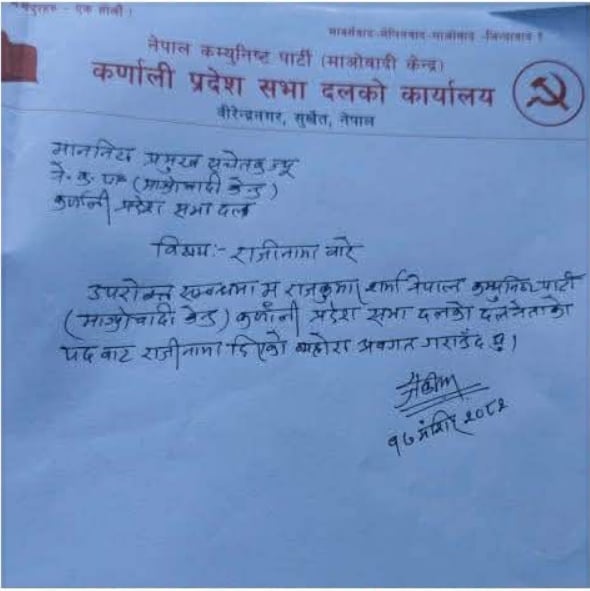 एक हाऔं !
मार्क्सवाद-लेनिनवाद-माओवाद -जिन्दावाद !
नेपाल कम्युनिष्ट पार्टी (माओवादी केन्द्र)
कर्णाली प्रदेश सभा दलको कार्यालय
वीरेन्द्रनगर, सुर्खेत, नेपाल
माननिय प्रमुख सचेतकज्यू
ने.क.पा (माओवादी केन्द्र)
कर्णाली प्रदेश सभा दल
विषय:- राजीनामा बारे
उपरोक्त सम्बन्धमा म राजकुमार शर्मा नेपाल कम्युनिष्ट पार्टी
(माओवादी केन्द्र) कर्णाली प्रदेश सभा दलको दलनेताको
पद बाट राजीनामा दिएको व्यहोरा अवगत गराउँद छु।
१७ मंसिर २०८२